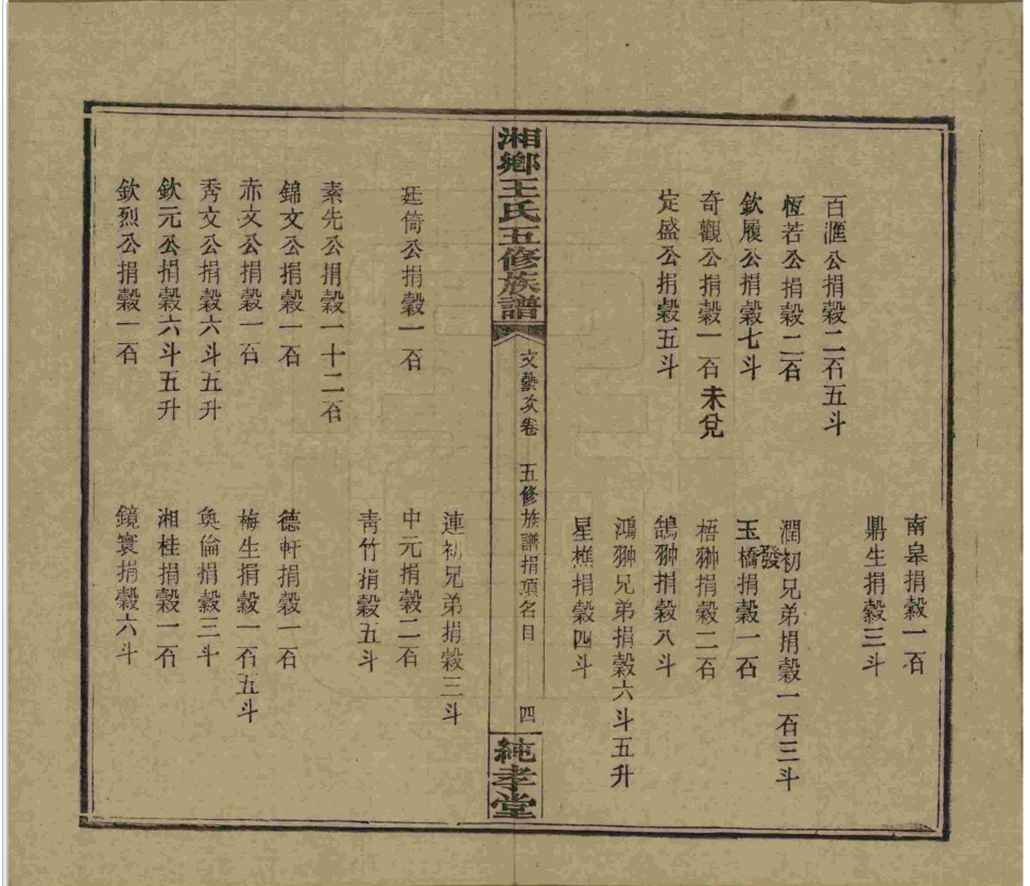 南皋捐穀一石
鼎生捐穀三斗
百滙公捐穀二石五斗
恆若公捐穀二石
潤初兄弟捐穀一石三斗
發
欽履公捐穀七斗
玉橋捐穀一石
奇觀公捐穀一石未兌
梧翀捐穀二石
定盛公捐穀五斗
鵠翀捐穀八斗
鴻翀兄弟捐穀六斗五升
星樵捐穀四斗
湘鄉王氏五修族譜
文藝次卷
五修族譜捐項名目
四
純孝堂
連初兄弟捐穀三斗
廷倚公捐穀一石
中元捐穀二石
青竹捐穀五斗
素先公捐穀一十二石
錦文公捐穀一石
德軒捐穀一石
赤文公捐穀一石
梅生捐穀一石五斗
秀文公捐穀六斗五升
奐倫捐穀三斗
欽元公捐穀六斗五升
湘桂捐穀一石
欽烈公捐穀一石
鏡寰捐穀六斗